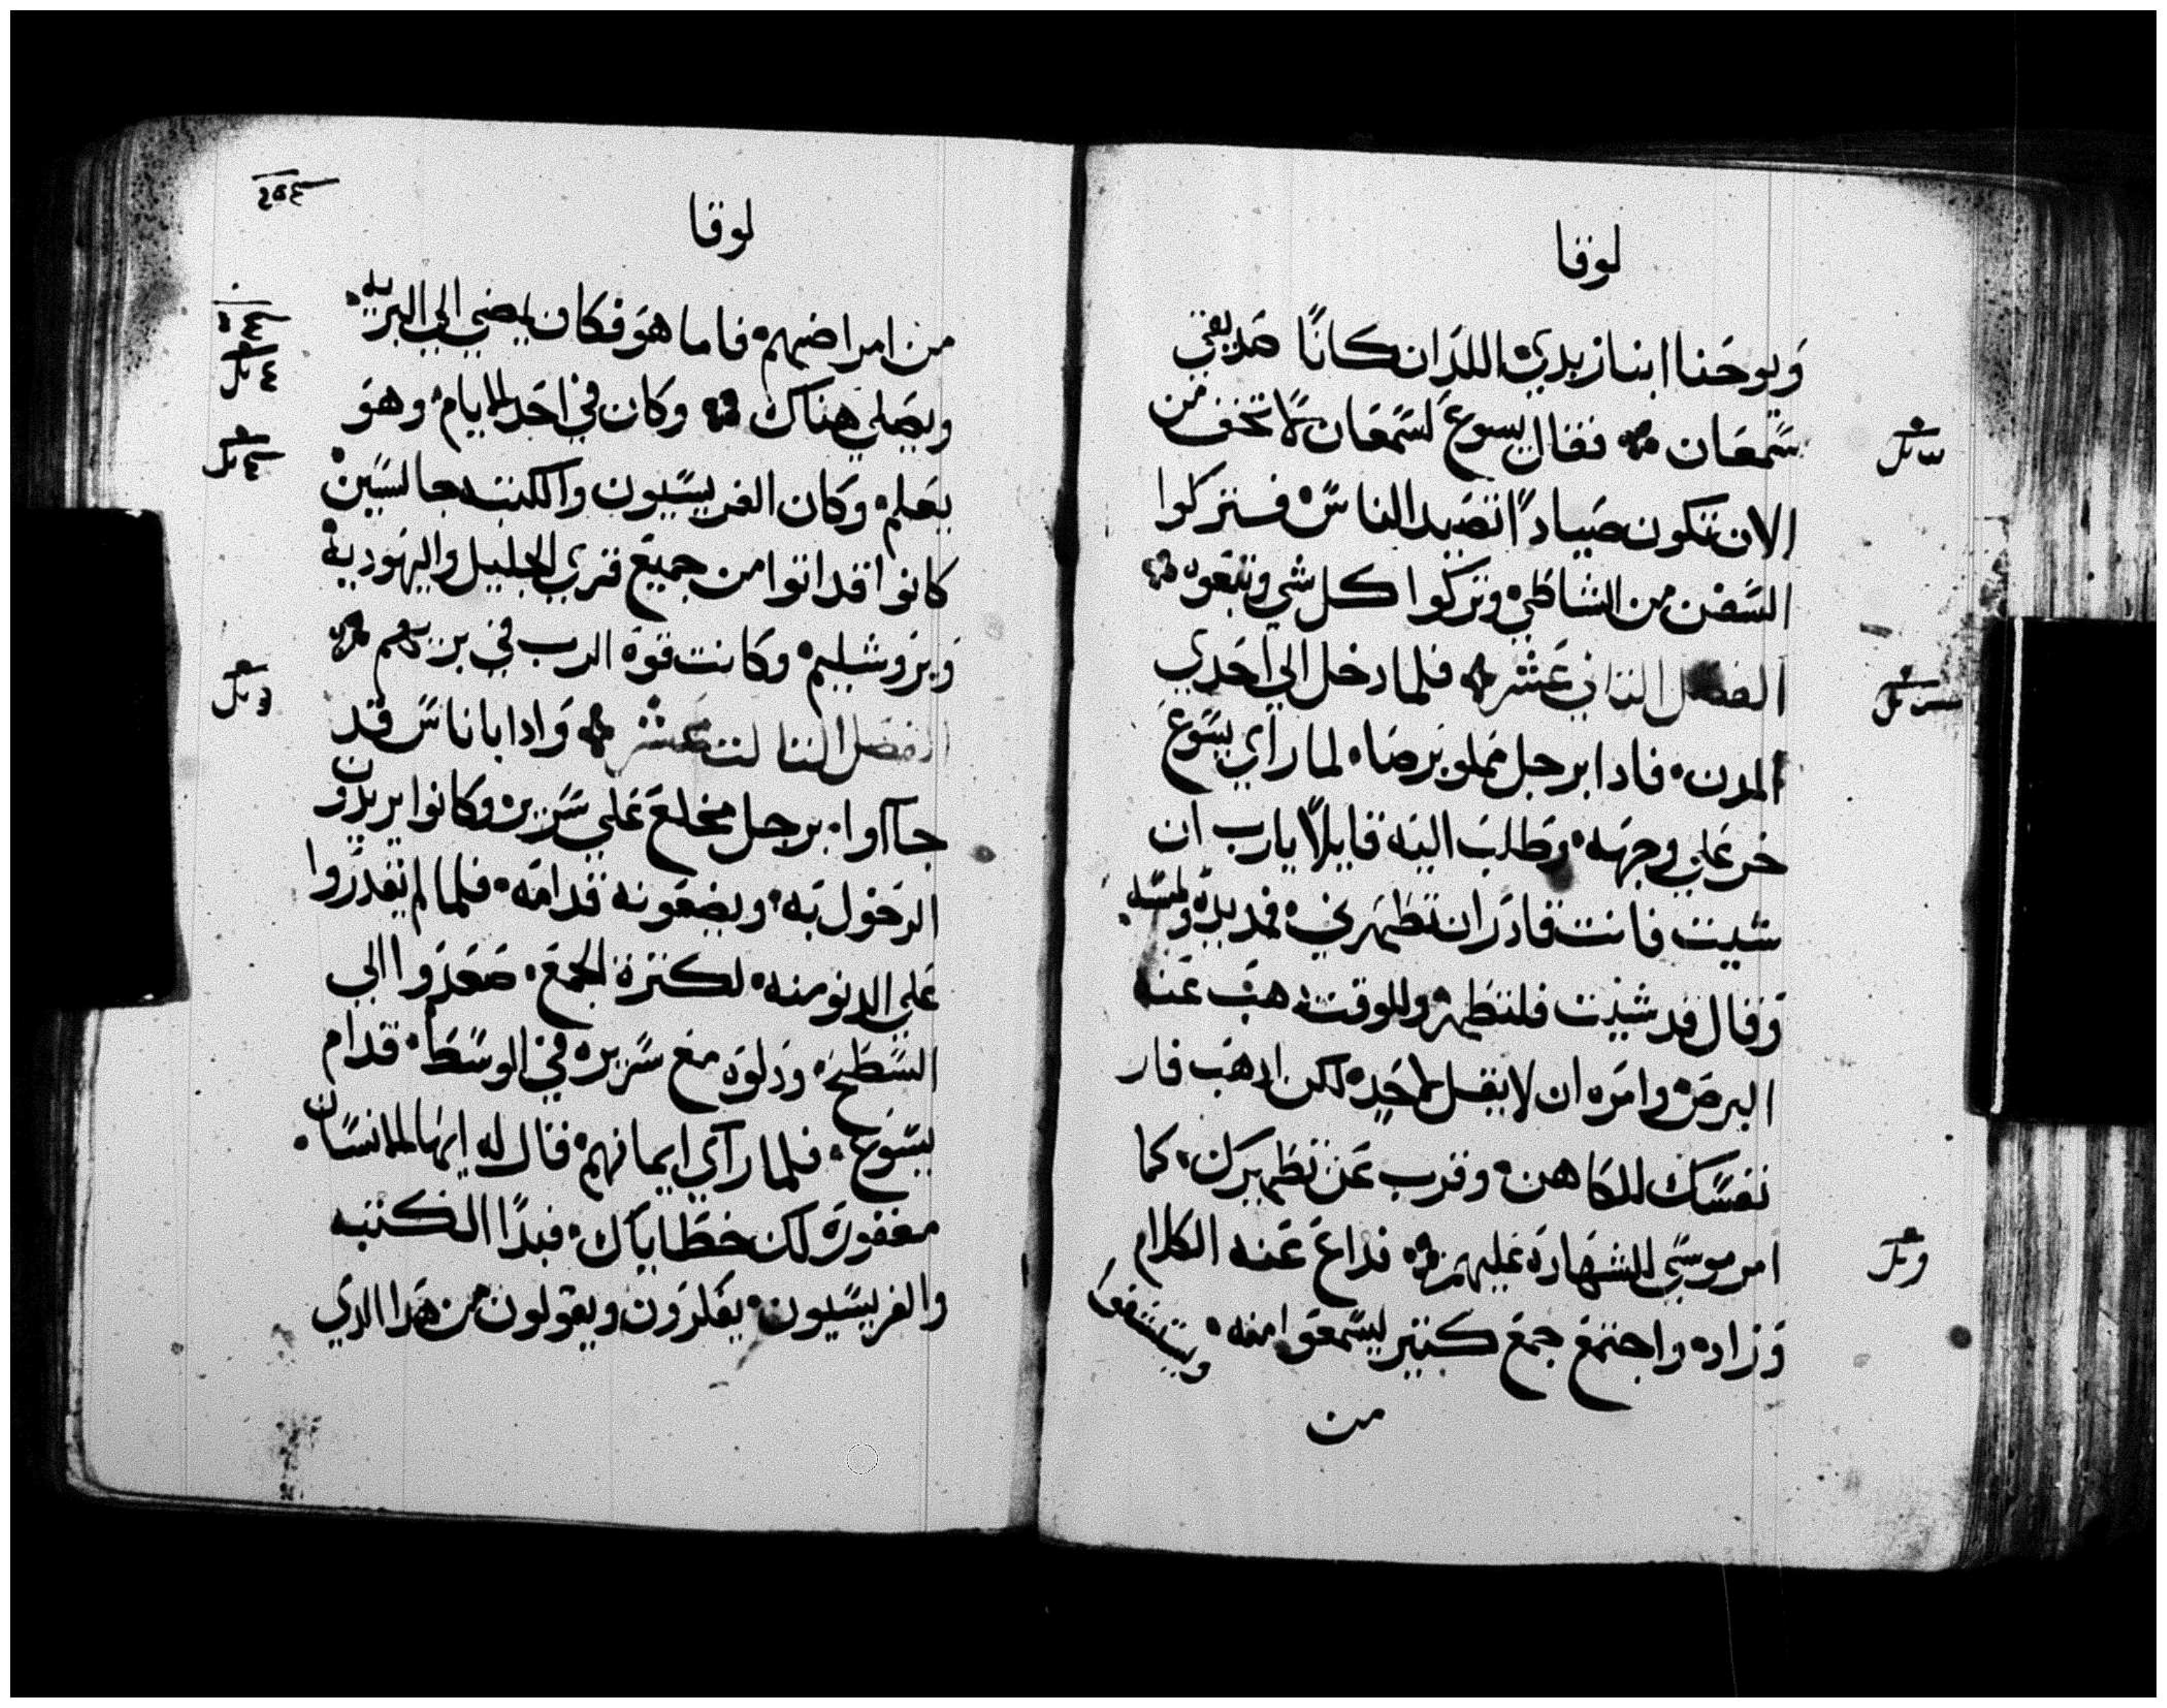 لوقا
ويوحنا ابنا زبدي اللدان كانا صديقي
سمعان فقال يسوع لسمعان لا تخف من
الان تكون صيادا تصيد الناس فتركوا
السفن من الشاطي وتركوا كل شي وتبعوه
الفصل الثاني عشر فلما دخل الي احدي
المدن فادا برجل مملو برصا لما راي يسوع
خر علي وجهه وطلب اليه قايلا يارب ان
شيت فانت قادر ان تطهرني فمد يده ولمسه
وقال قد شيت فلتطهر وللوقت دهب عنه
البرص وامره ان لا يقل لاحد لكن ادهب فار
نفسك للكاهن وقرب عن تطهيرك كما
امر موسي للشهاده عليهم فداع عنه الكلام
وزاده واجتمع جمع كثير ليسمعوا منه ويستشفوا
من
لوقا
من امراضهم فاما هو فكان يمضي الي البريه
ويصلي هناك وكان في احد الايام وهو
يعلم وكان الفريسيون والكتبه جالسين
كانوا قد اتوا من جميع قري الجليل واليهودية
ويروشليم وكانت قوة الرب في بريهم
الفصل الثالث عشر وادا باناس قد
جاآوا برجل مخلع علي سرير وكانوا يريدون
الدخول به ويضعونه قدامه فلما لم يقدروا
علي الدنو منه لكثرة الجمع صعدوا الي
السطح ودلوه مع سريره في الوسط قدام
يسوع فلما رآي ايمانهم قال له ايها الانسان
مغفورة لك خطاياك فبدا الكتبه
والفريسيون يفكرون ويقولون من هدا الدي